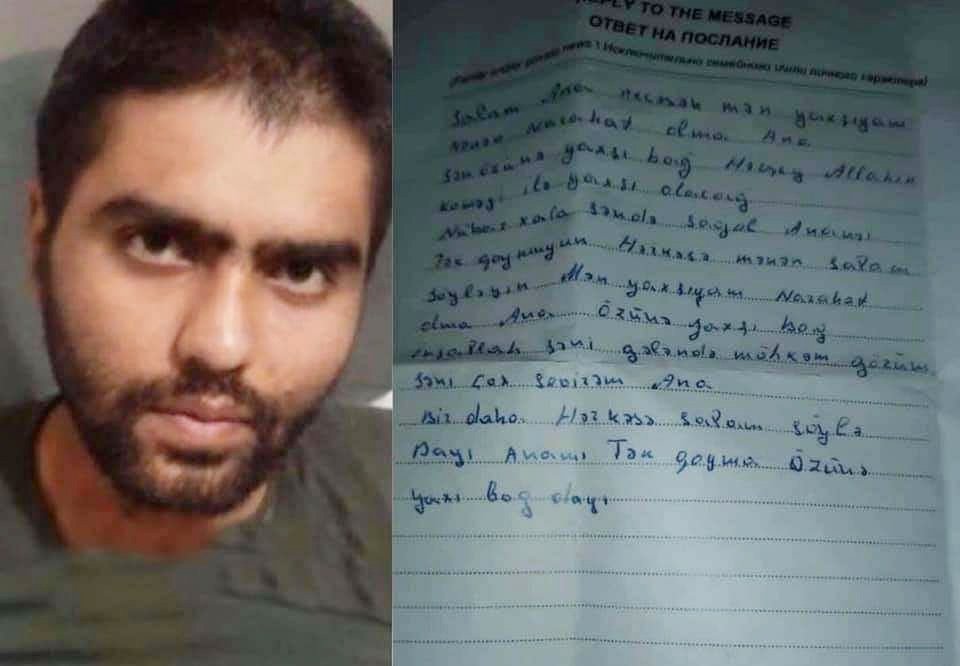 REPLY TO THE MESSAGE
ОТВЕТ НА ПОСЛАНИЕ
(Family and/or private news \ Исключительно семейного и/или личного характера)
Salam Ana necəsən mən yaxşıyam
Narahat olma Ana
Sən özünə yaxşı bağ Hərşey Allahın
köməyi ilə yaxşı olacağ
Nübar xala səndə sağol Anamı
Tək qoymuyun Hərkəsə mənən salam
söyləyin Mən yaxşıyam Narahat
olma Ana Özünə yaxşı bağ
inşallah səni gələndə möhkəm
Səni çox sevirəm Ana
Bir daha Hərkəsə salam söylə
Dayı Anamı Tək qoyma Özünə
yaxı bağ dayı